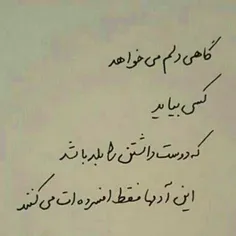 گاهی دلم می خواهد
کسی بیاید
که دوست داشتن را بلد باشد
این آدمها فقط افسرده ات می کنند